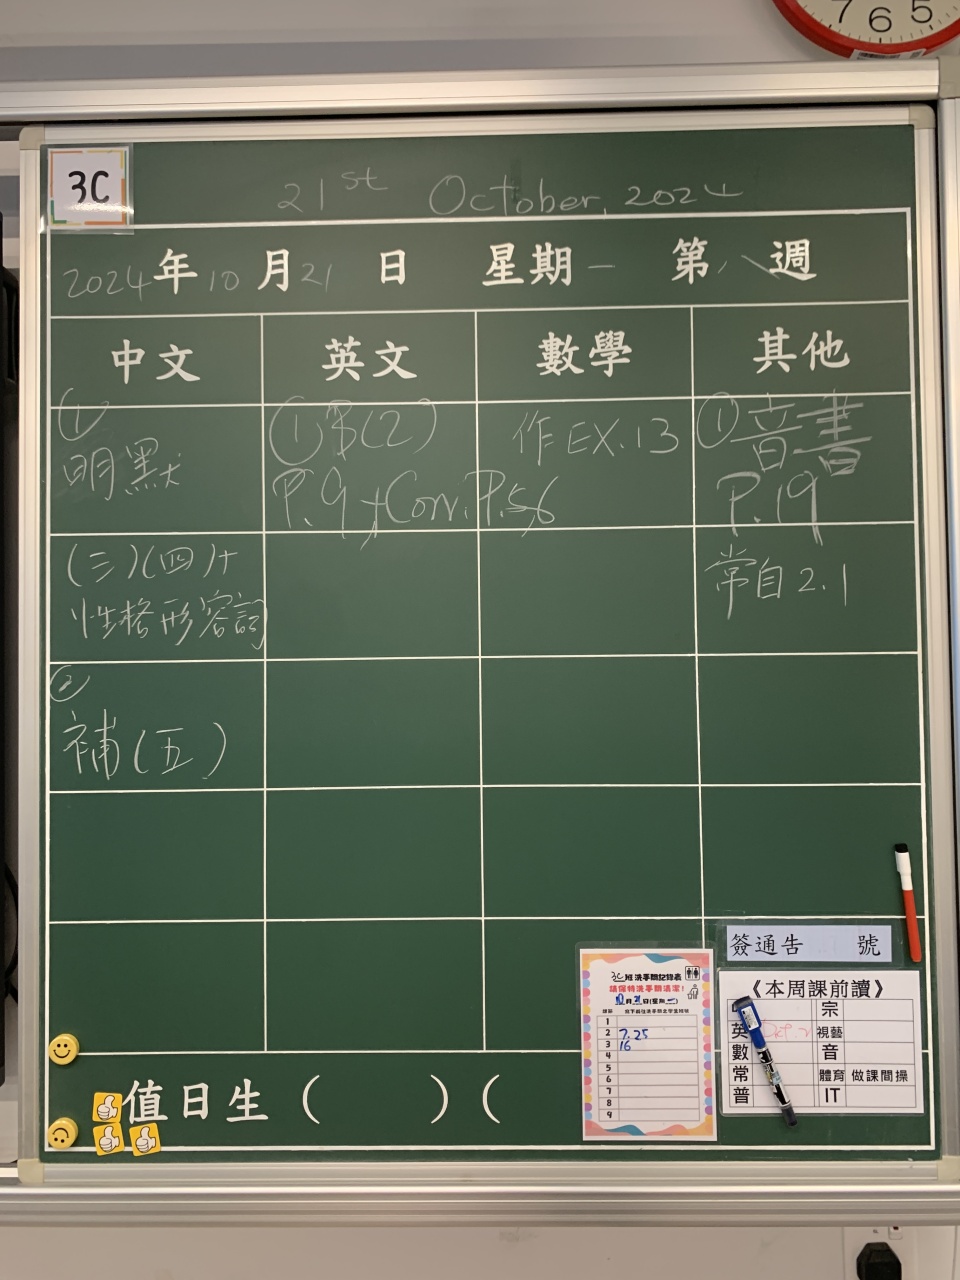 7 6 5
3C
21st October, 2024
2024年10月21日 星期一 第八週
中文 英文 數學 其他
①
明默
(三)(四)+
性格形容詞
②
補(五)
P.9,+Corr.P.5,6
作EX.13
①音書
P.19
常自2.1
簽通告 號
3C班洗手間記錄表
請保持洗手間清潔!
1
2 7.25
3 16
4
5
6
7
8
9
《本周課前讀》
宗
英 視藝
數 音
常 體育 做課間操
普 IT
值日生( )(